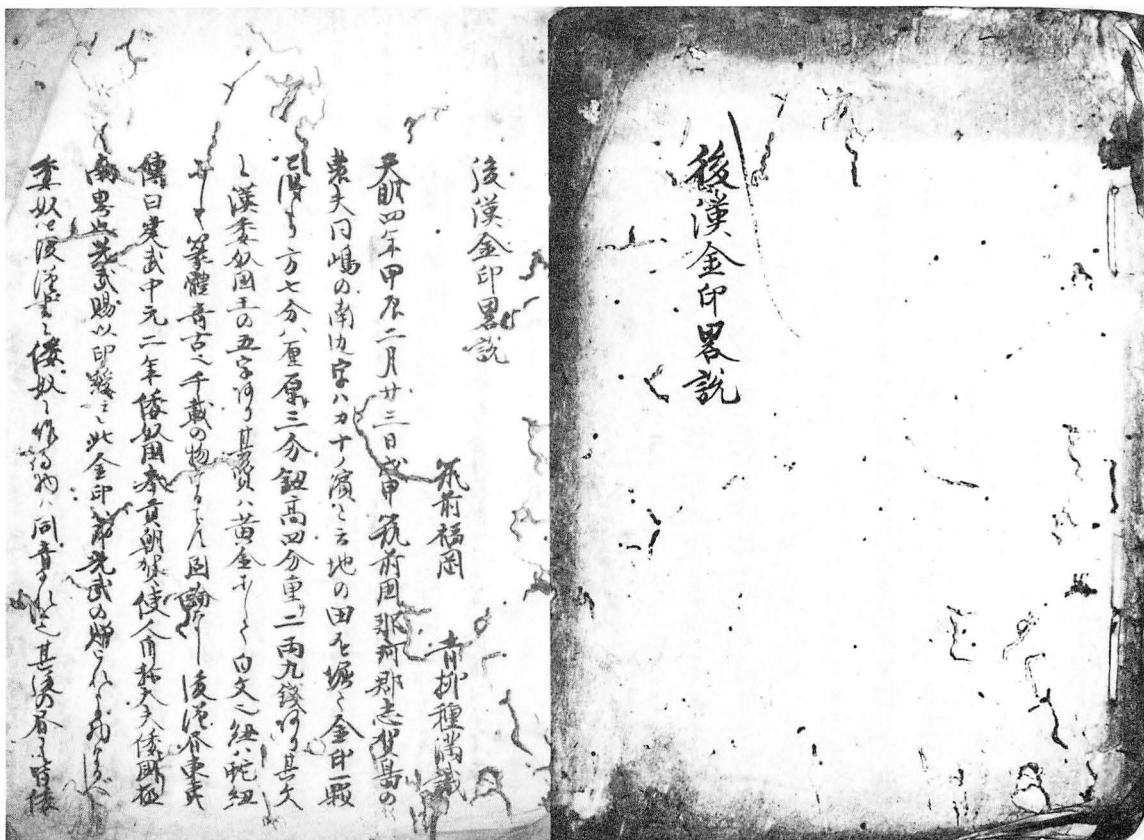 後漢金印畧説
後漢金印畧説
筑前福岡 青柳種満識
天明四年甲辰二月廿三日戊申筑前国那珂郡志賀島の
農夫同嶋の南辺字ハカナノ濱と云地の田を堀て金印一顆
を得たり方七分八厘厚三分鈕高四分重二両九銭あり其文
に漢委奴国王の五字あり其質ハ黄金にして白文也紐ハ蛇紐
にして篆體奇古也千載の物
後漢書東夷
傳曰建武中元二年倭奴国奉貢朝賀使人自称大夫倭国極
南界也光武賜以印綬と此金印ハ即光武の贈られし
委奴は後漢書に倭奴に作る 同音 其後の